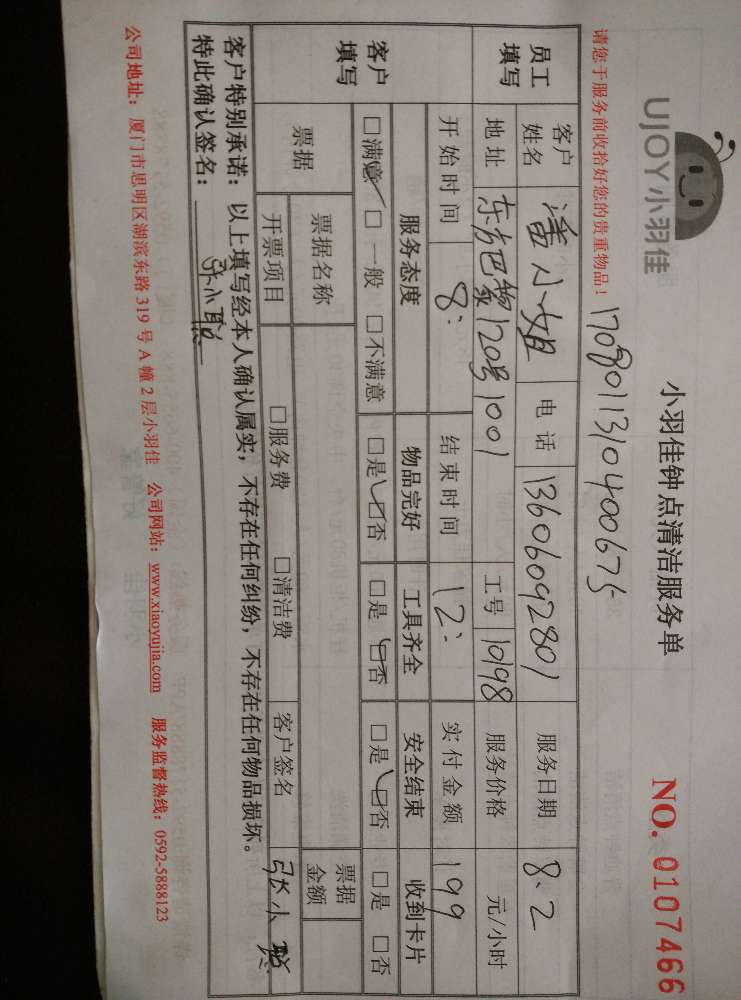 UJOY小羽佳
小羽佳钟点清洁服务单
NO. 0107466
请您于服务前收拾好您的贵重物品！
1708011310400675
员工填写
客户姓名 潘小姐 电话 13606092801 服务日期 8.2
地址 东方巴黎120号1001 工号 10198 服务价格 元/小时
开始时间 8: 结束时间 12: 实付金额 199
客户填写
服务态度 物品完好 工具齐全 安全结束 收到卡片
□满意 □一般 □不满意 □是 □否 □是 □否 □是 □否 □是 □否
票据 票据名称 票据金额
开票项目 □服务费 □清洁费 客户签名 张小聪
客户特别承诺：以上填写经本人确认属实，不存在任何纠纷，不存在任何物品损坏。
特此确认签名：
公司地址：厦门市思明区湖滨东路 319 号 A 幢 2 层小羽佳 公司网站：www.xiaoyujia.com 服务监督热线：0592-5888123